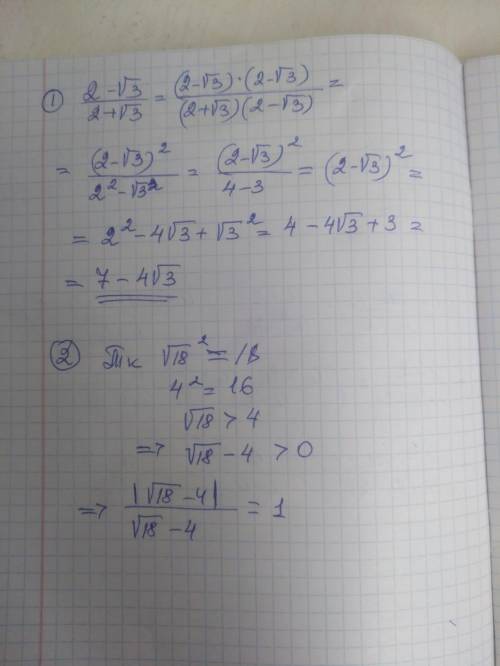 ① (2-√3)/(2+√3) = ((2-√3)·(2-√3))/((2+√3)(2-√3)) =
= (2-√3)²/(2²-√3²) = (2-√3)²/(4-3) = (2-√3)² =
= 2² - 4√3 + √3² = 4 - 4√3 + 3 =
= 7 - 4√3
② Тк √18² = 18
4² = 16
√18 > 4
=> √18 - 4 > 0
=> |√18 - 4|/(√18 - 4) = 1